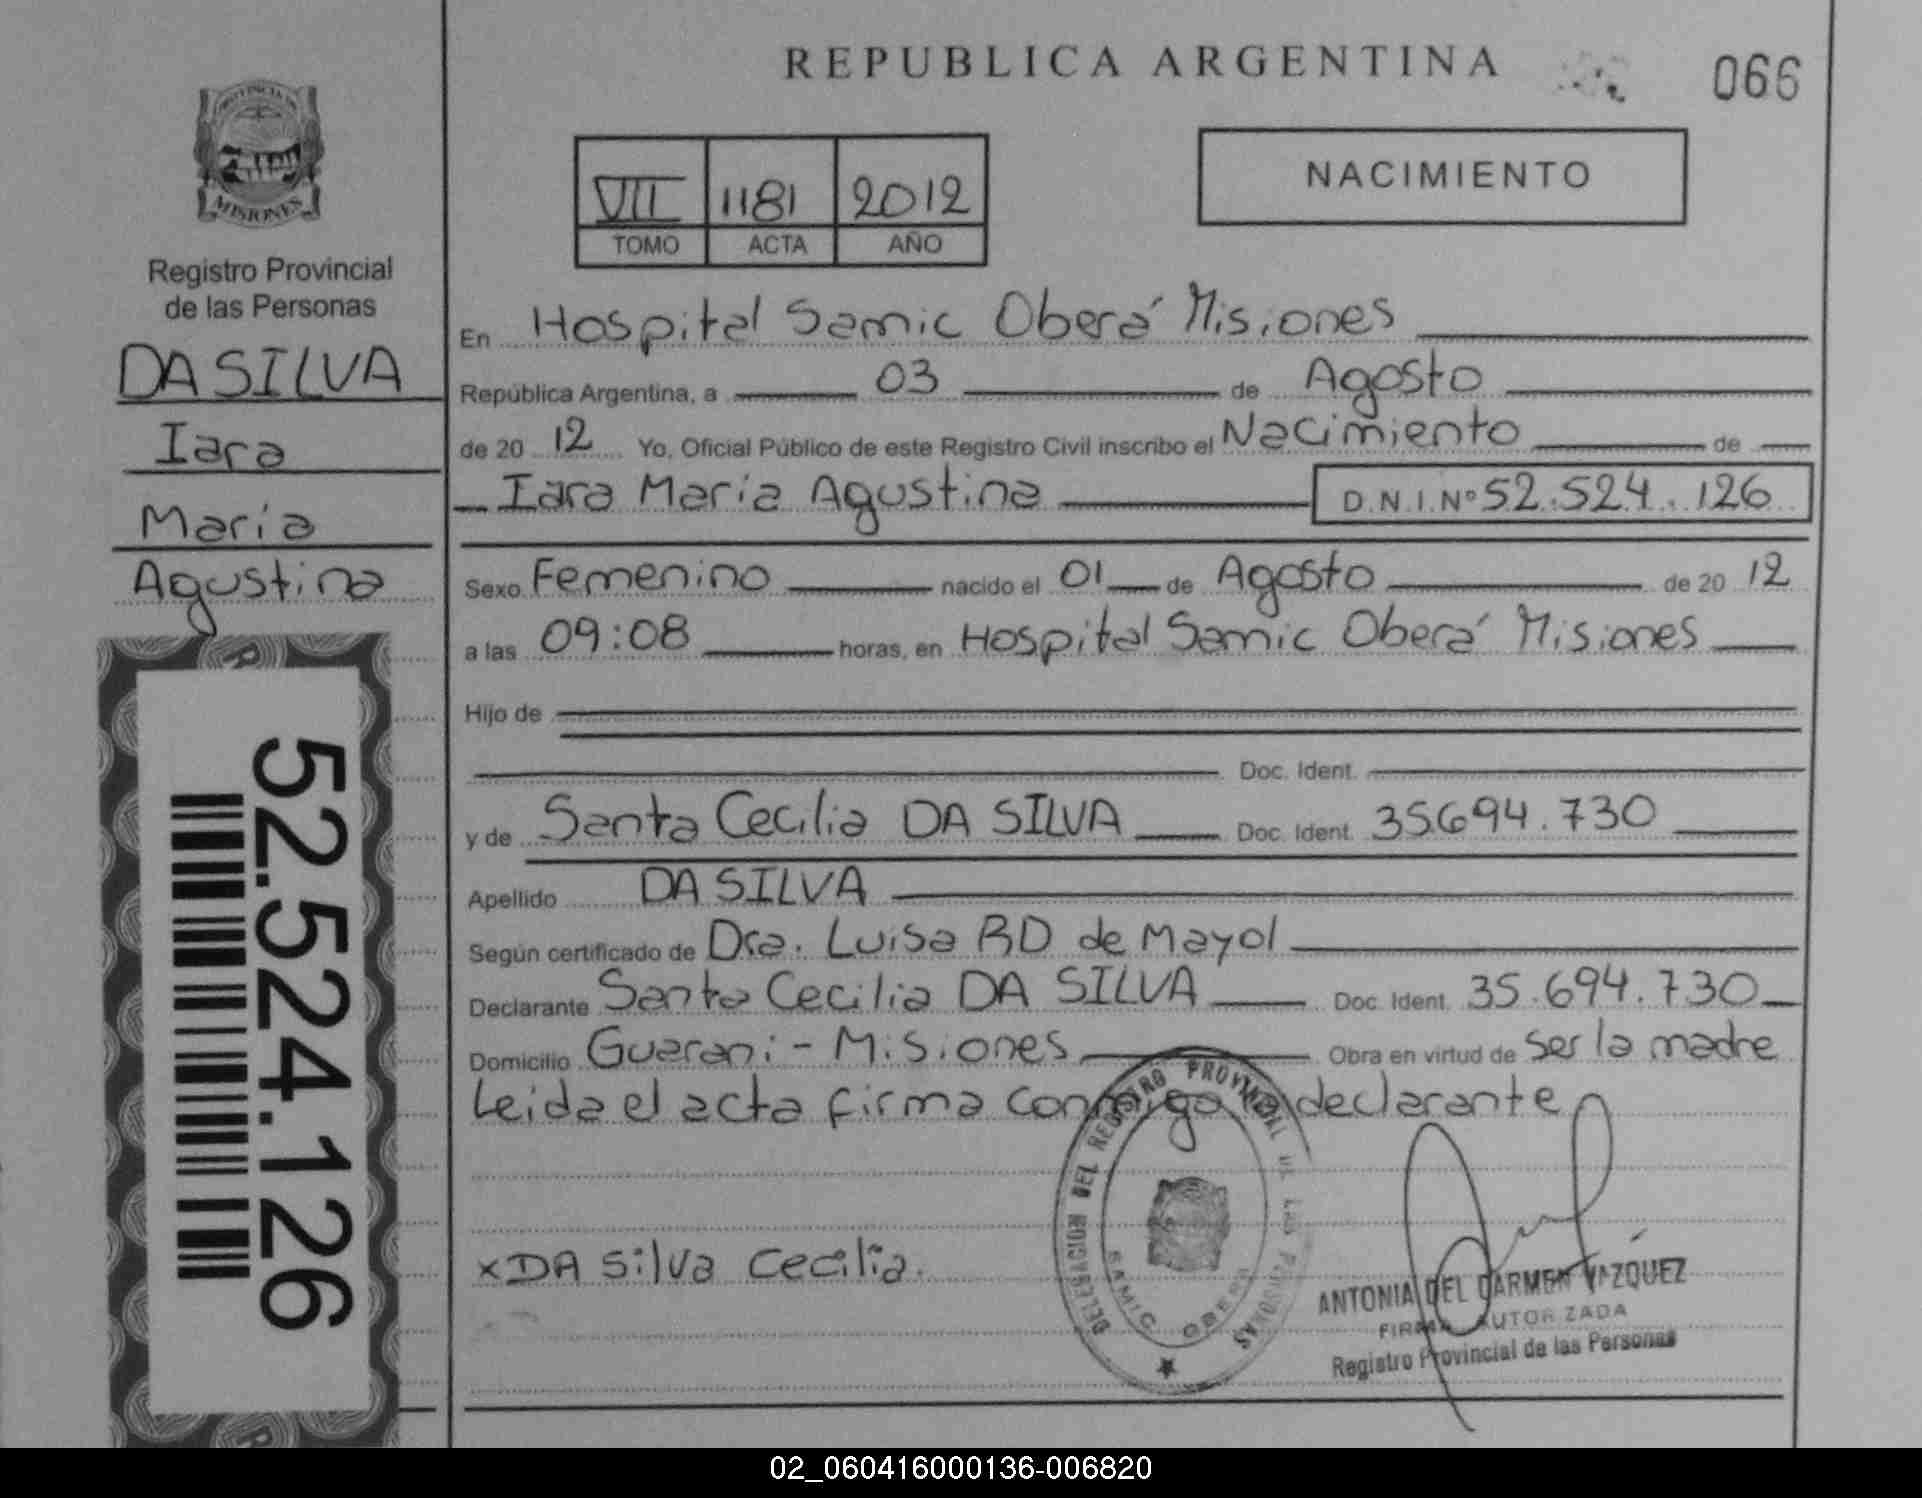 REPUBLICA ARGENTINA
066
PROVINCIA DE
MISIONES
Registro Provincial
de las Personas
DA SILVA
Iara
María
Agustina
52.524.126
VII 1181 2012
TOMO ACTA AÑO
NACIMIENTO
En Hospital Samic Oberá Misiones
República Argentina, a 03 de Agosto
de 20 12 Yo, Oficial Público de este Registro Civil inscribo el Nacimiento de
Iara María Agustina D.N.I.Nº 52.524.126
Sexo Femenino nacido el 01 de Agosto de 20 12
a las 09:08 horas, en Hospital Samic Oberá Misiones
Hijo de
Doc. Ident.
y de Santa Cecilia DA SILVA Doc. Ident. 35.694.730
Apellido DA SILVA
Según certificado de Dra. Luisa RD de Mayol
Declarante Santa Cecilia DA SILVA Doc. Ident. 35.694.730
Domicilio Guaraní - Misiones Obra en virtud de ser la madre
Leida el acta firma conmigo la declarante
x DA Silva Cecilia.
DELEGACION DEL REGISTRO PROVINCIAL DE LAS PERSONAS
SAMIC OBERA
ANTONIA DEL CARMEN VAZQUEZ
FIRMA AUTORIZADA
Registro Provincial de las Personas
02_060416000136-006820